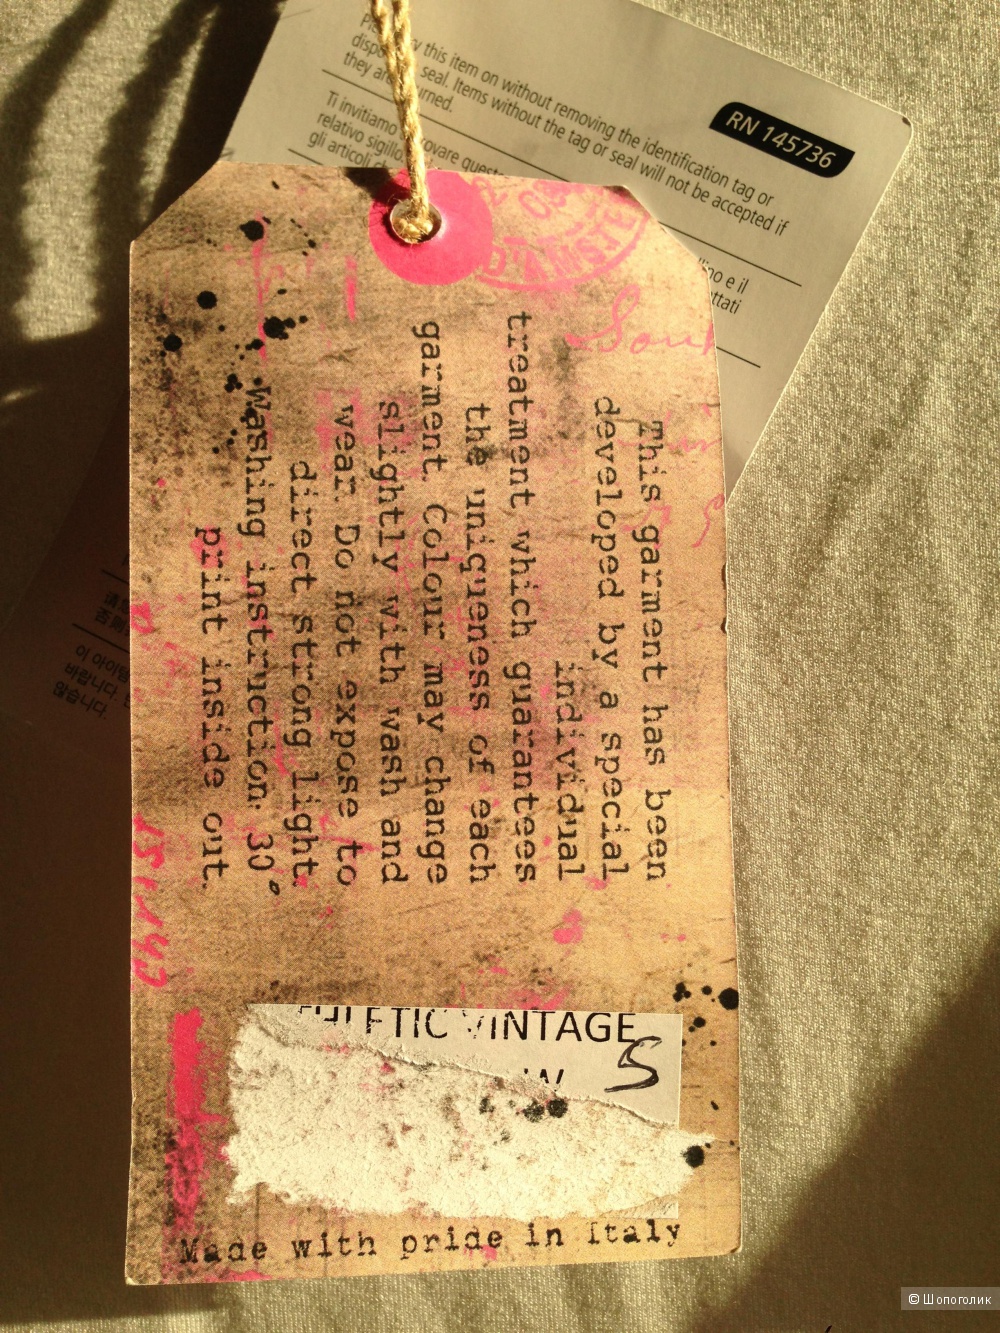 this item on without removing the identification tag or
seal. Items without the tag or seal will not be accepted if
they
RN 145736
Ti invitiamo
relativo sigillo.
gli articoli
lino e il
ttati
이 아이템
바랍니다.
않습니다.
This garment has been
developed by a special
individual
treatment which guarantees
the uniqueness of each
garment. Colour may change
slightly with wash and
wear. Do not expose to
direct strong light.
Washing instruction: 30°
print inside out.
christ
THLETIC VINTAGE
S
Made with pride in Italy
© Шопоголик